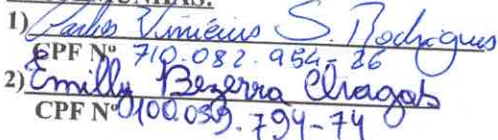 1) Carlos Vinicius S. Rodrigues
CPF Nº 710.082.954-26
2) Emilly Bezerra Chagas
CPF Nº 0100.039.794-74